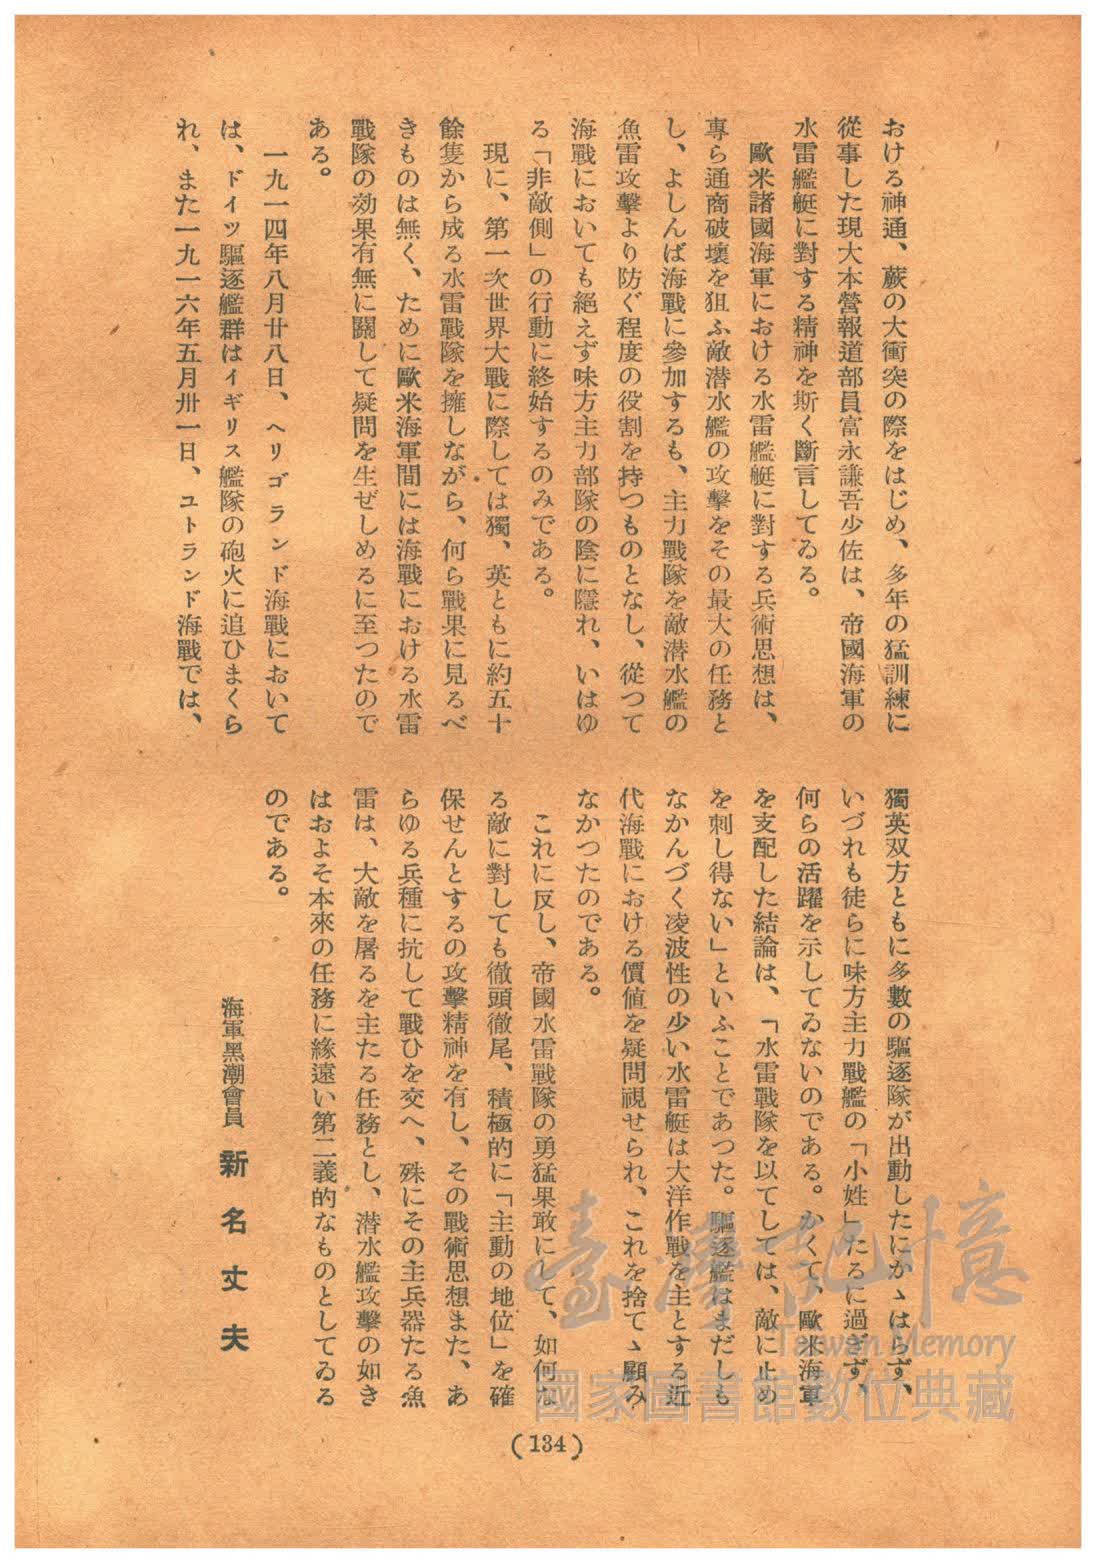 おける神通、蕨の大衝突の際をはじめ、多年の猛訓練に
從事した現大本營報道部員富永謙吾少佐は、帝國海軍の
水雷艦艇に對する精神を斯く斷言してゐる。
歐米諸國海軍における水雷艦艇に對する兵術思想は、
專ら通商破壞を狙ふ敵潜水艦の攻擊をその最大の任務と
し、よしんば海戰に參加するも、主力戰隊を敵潜水艦の
魚雷攻擊より防ぐ程度の役割を持つものとなし、從つて
海戰においても絕えず味方主力部隊の陰に隱れ、いはゆ
る「非敵側」の行動に終始するのみである。
現に、第一次世界大戰に際しては獨、英ともに約五十
餘隻から成る水雷戰隊を擁しながら、何ら戰果に見るべ
きものは無く、ために歐米海軍間には海戰における水雷
戰隊の効果有無に關して疑問を生ぜしめるに至つたので
ある。
一九一四年八月廿八日、ヘリゴランド海戰において
は、ドイツ驅逐艦群はイギリス艦隊の砲火に追ひまくら
れ、また一九一六年五月卅一日、ユトランド海戰では、
獨英双方ともに多數の驅逐隊が出動したにかゝはらず、
いづれも徒らに味方主力戰艦の「小姓」たるに過ぎず、
何らの活躍を示してゐないのである。かくて、歐米海軍
を支配した結論は、「水雷戰隊を以てしては、敵に止め
を刺し得ない」といふことであつた。驅逐艦はまだしも
なかんづく凌波性の少い水雷艇は大洋作戰を主とする近
代海戰における價値を疑問視せられ、これを捨てゝ顧み
なかつたのである。
これに反し、帝國水雷戰隊の勇猛果敢にして、如何な
る敵に對しても徹頭徹尾、積極的に「主動の地位」を確
保せんとするの攻擊精神を有し、その戰術思想また、あ
らゆる兵種に抗して戰ひを交へ、殊にその主兵器たる魚
雷は、大敵を屠るを主たる任務とし、潜水艦攻擊の如き
はおよそ本來の任務に緣遠い第二義的なものとしてゐる
のである。
海軍黑潮會員 新名丈夫
(134)
臺灣記憶
Taiwan Memory
國家圖書館數位典藏